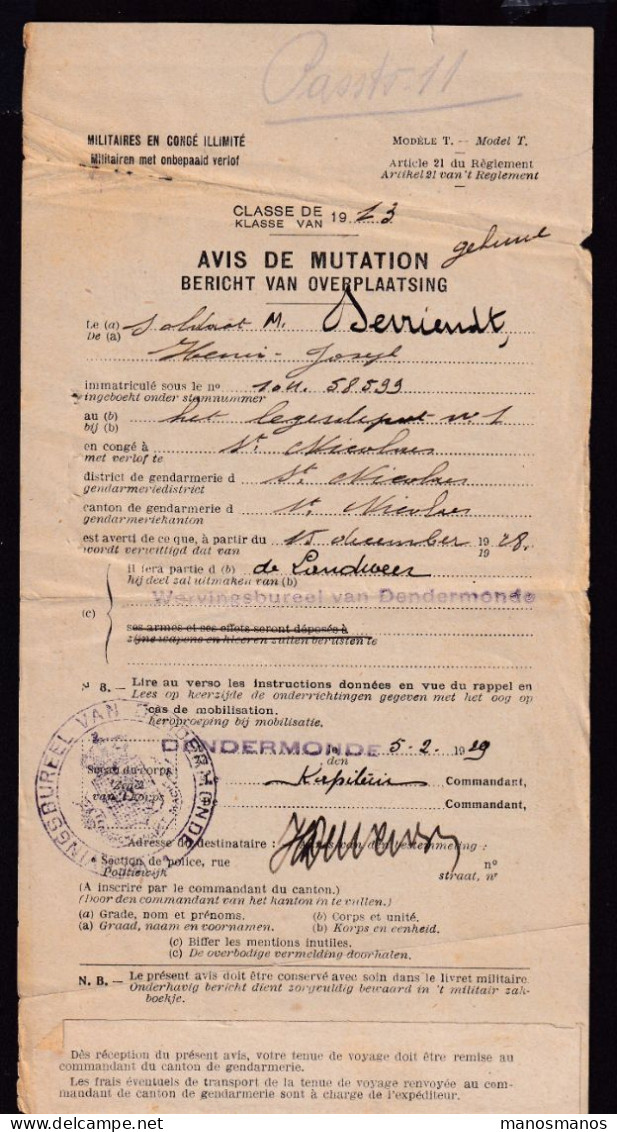 Passto 11
MILITAIRES EN CONGÉ ILLIMITÉ
Militairen met onbepaald verlof
MODÈLE T. — Model T.
Article 21 du Règlement
Artikel 21 van 't Reglement
CLASSE DE
KLASSE VAN 1913
AVIS DE MUTATION
BERICHT VAN OVERPLAATSING
Le (a) Soldaat M. Derriendt,
De (a)
Henri - Joseph
immatriculé sous le nº 101. 58599
ingeboekt onder stamnummer
au (b) het legerdepot nº 1
bij (b)
en congé à St. Nicolaes
met verlof te
district de gendarmerie d St. Nicolaes
gendarmeriedistrict
canton de gendarmerie d St. Nicolaes
gendarmeriekanton
est averti de ce que, à partir du 15 december 1928.
wordt verwittigd dat van 19
il fera partie d (b) de Landweer
hij deel zal uitmaken van (b)
Wervingsbureel van Dendermonde
(c)
ses armes et ses effets seront déposés à
zijne wapens en kleeren zullen berusten te
N. B. — Lire au verso les instructions données en vue du rappel en
Lees op keerzijde de onderrichtingen gegeven met het oog op
cas de mobilisation.
heroproeping bij mobilisatie.
DENDERMONDE le 5-2. 1929
den
WERVINGSBUREEL VAN DENDERMONDE
Sceau du corps
Zegel
van 't korps
Kapitein Commandant,
Commandant,
Adresse du destinataire : Adres van den bestemmeling :
Section de police, rue nº
Politiewijk straat, nr
(A inscrire par le commandant du canton.)
(Door den commandant van het kanton in te vullen.)
(a) Grade, nom et prénoms. (b) Corps et unité.
(a) Graad, naam en voornamen. (b) Korps en eenheid.
(c) Biffer les mentions inutiles.
(c) De overbodige vermelding doorhalen.
N. B. — Le présent avis doit être conservé avec soin dans le livret militaire.
Onderhavig bericht dient zorgvuldig bewaard in 't militair zak-
boekje.
Dès réception du présent avis, votre tenue de voyage doit être remise au
commandant du canton de gendarmerie.
Les frais éventuels de transport de la tenue de voyage renvoyée au com-
mandant de canton de gendarmerie sont à charge de l'expéditeur.
manosmanos